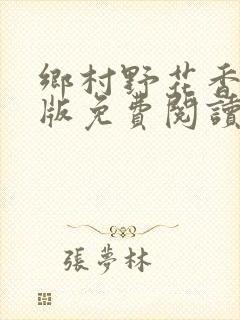 鄉村野花香
版免費閱讀
張夢林